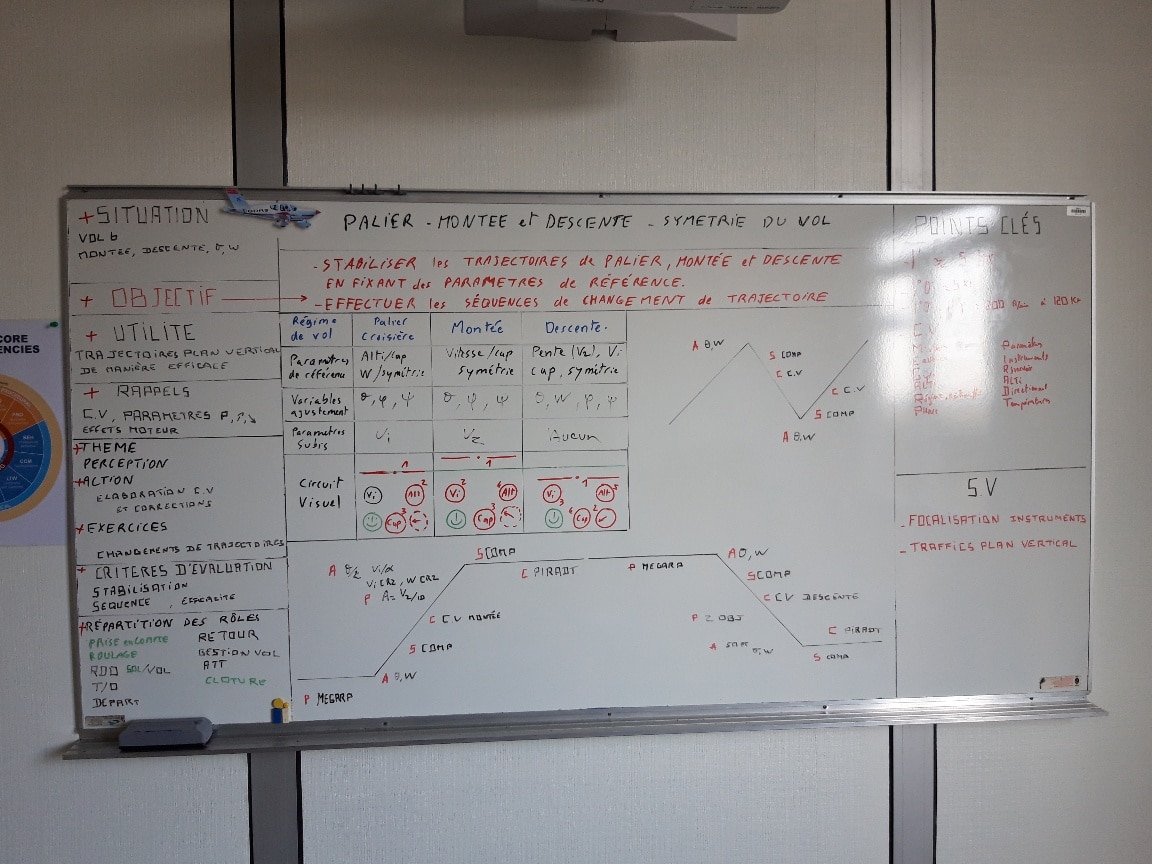 CORE
ENCIES
+ SITUATION
VOL 6
MONTÉE, DESCENTE, θ, W
PALIER - MONTEE et DESCENTE - SYMETRIE DU VOL
+ OBJECTIF
- STABILISER les TRAJECTOIRES de PALIER, MONTÉE et DESCENTE
EN FIXANT des PARAMETRES de RÉFÉRENCE.
- EFFECTUER les SÉQUENCES de CHANGEMENT de TRAJECTOIRE
+ UTILITE
TRAJECTOIRES PLAN VERTICAL
DE MANIÈRE EFFICACE
+ RAPPELS
C.V, PARAMETRES
EFFETS MOTEUR
+THEME
PERCEPTION
+ACTION
ELABORATION C.V
ET CORRECTIONS
+EXERCICES
CHANGEMENTS DE TRAJECTOIRES
+ CRITERES D'ÉVALUATION
STABILISATION
SEQUENCE, EFFICACITÉ
+RÉPARTITION DES RÔLES
PRISE en COMPTE
ROULAGE
RDO SOL/VOL
T/O
DÉPART
RETOUR
GESTION VOL
ATT
CLOTURE
Régime de vol
Palier Croisière
Montée
Descente.
Paramètres de référence
Alti/cap W/symétrie
Vitesse/cap symétrie
Pente (Vz), Vi cap, symétrie
Variables ajustement
θ, φ, ψ
θ, φ, ψ
Paramètres Subis
Vi
Vz
Aucun
Circuit Visuel
1
Vi Alt 2
Cap 3
1
Vi 2 Alt 4
Cap 3
1
Vi Alt
Cap 2
A θ,W
S COMP
C C.V
C C.V
S COMP
A θ,W
P MEGARA
A θ,W
S COMP
C C.V MONTÉE
Vi CR2, W CR2
P A = Vz/10
S COMP
C PIRADT
P MEGARA
A θ, W
S COMP
C C.V DESCENTE
P Z OBJ
θ, W
S COMP
C PIRADT
POINTS CLÉS
à 120 Kt
C.V
Paramètres
Instruments
ALTI
Directionnel
Température
S.V
- FOCALISATION INSTRUMENTS
- TRAFFICS PLAN VERTICAL